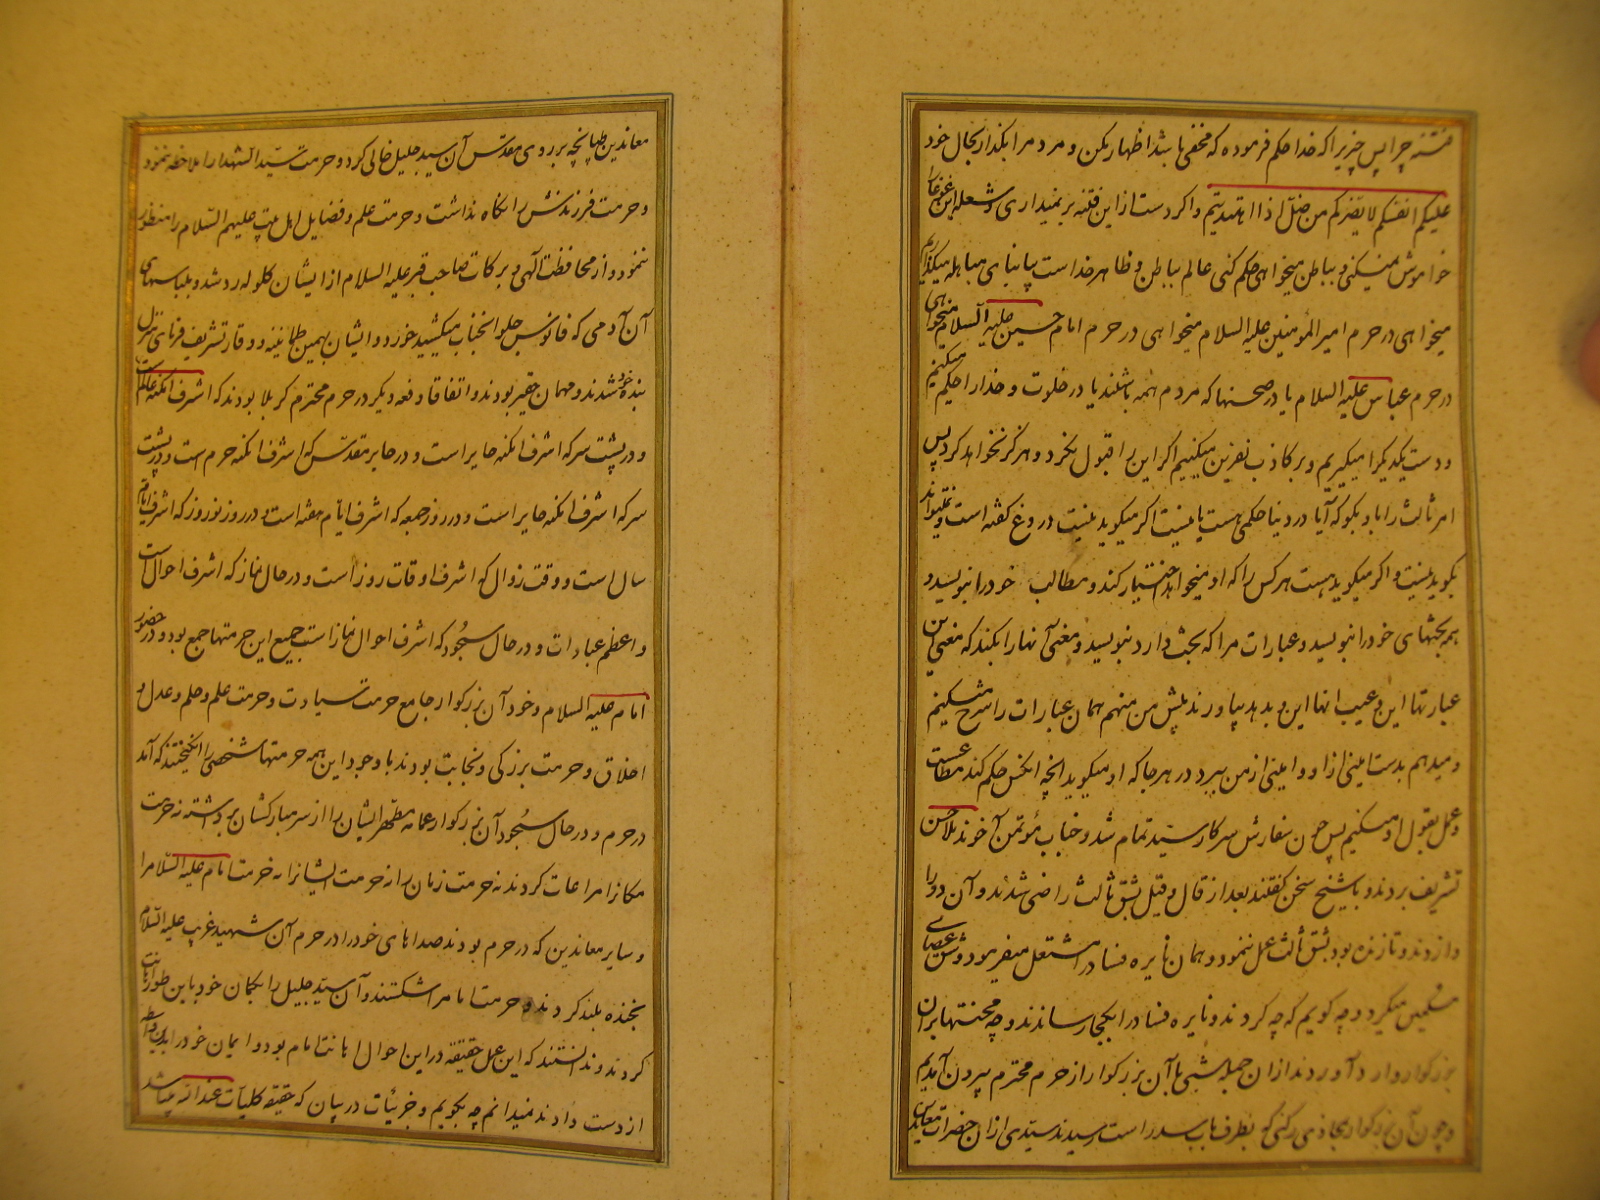 فتنه چرا پس چیزیرا که خدا حکم فرموده که مخفی باشد اظهار بکن و مردم را بگذار بحال خود
علیکم انفسکم لا یضرکم من ضل اذا اهتدیتم و اگر دست از این فتنه بر نمیداری و شعله این
خواموش نمیکنی و بباطن میخواهی حکم کنی عالم بباطن و ظاهر خداست بیا بنای مباهله میگذاریم
میخواهی در حرم امیر المؤمنین علیه السلام میخواهی در حرم امام حسین علیه السلام میخواهی
در حرم عباس علیه السلام یا در صحنها که مردم همه باشند یا در خلوت و خدا را حکم میکنیم
و دست یکدیگر را میگیریم و بر کاذب نفرین میکنیم اگر این را قبول نکرد و هرگز نخواهد کرد پس
امر ثالث را باو بگو که آیا در دنیا حکمی هست یا نیست اگر میگوید نیست دروغ گفته است و نمیتواند
بگوید نیست و اگر میگوید هست هر کس را که او میخواهد اختیار کند و مطالب خود را بنویسد و
همه بحثهای خود را بنویسد و عبارات مرا که بحث دارد بنویسد و معنی آنها را بکند که معنی این
عبارتها این و عیب انها این و بدهد بیاورند پیش من منهم همان عبارات را شرح میکنم
و میدهم بدست امینی از او و امینی از من ببرد در هر جا که او میگوید انچه انکس حکم کند مطاعست
و عمل بقول او میکنیم پس چون سفارش سرکار سید تمام شد و جناب مؤتمن آخوند ملا حسن
تشریف بردند و با شیخ سخن گفتند بعد از قال و قیل بشق ثالث راضی شدند و آن دو را
وا زدند و تا زنده بود بشق ثالث عمل ننمود و همان نایره فساد را مشتعل میفرمود و شق عصای
مسلمین میکرد و چه گویم که چه کردند و نایره فساد را بکجا رساندند و چه محنتها بران
بزرگوار وارد آوردند از ان جمله شبی با آن بزرگوار از حرم محترم بیرون آمدیم
و چون آن بزرگوار بمحاذی رکنی که بطرف باب سدر است رسیدند سیدی از ان حضرات معاندین
معاندین طپانچه بر روی مقدس آن سید جلیل خالی کرد و حرمت سید الشهدا را ملاحظه ننمود
و حرمت فرزندش را نگاه نداشت و حرمت علم و فضایل اهل بیت علیهم السلام را منظور
ننمود و از محافظت آلهی و برکات صاحب قبر علیه السلام از ایشان گلوله رد شد و بلباسهای
آن آدمی که فانوس جلو انجناب میکشید خورد و ایشان بهمین طمانینه و وقار تشریف فرمای منزل
بنده خود شدند و مهمان حقیر بودند و اتفاقا دفعه دیگر در حرم محترم کربلا بودند که اشرف امکنه عالم است
و در پشت سر که اشرف امکنه حایر است و در حایر مقدس که اشرف امکنه حرم است و در پشت
سر که اشرف امکنه حایر است و در روز جمعه که اشرف ایام هفته است و در روز نوروز که اشرف ایام
سال است و وقت زوال که اشرف اوقات روز است و در حال نماز که اشرف احوال است
و اعظم عبادات و در حال سجود که اشرف احوال نماز است جمیع این حرمتها جمع بود و در حضور
امام علیه السلام و خود آن بزرگوار جامع حرمت سیادت و حرمت علم و حلم و عدل و
اخلاق و حرمت بزرگی و نجابت بودند با وجود این همه حرمتها شخصی را انگیختند که آمد
در حرم و در حال سجود آن بزرگوار عمامه مطهر ایشان را از سر مبارکشان برداشته نه حرمت
مکانرا مراعات کردند نه حرمت زمان را نه حرمت ایشانرا نه حرمت امام علیه السلام را
و سایر معاندین که در حرم بودند صداهای خود را در حرم آن شهید غریب علیه السلام
بخنده بلند کردند و حرمت امام را شکستند و آن سید جلیل را بگمان خود باین طور اهانت
کردند و ندانستند که این عمل حقیقة در این احوال اهانت امام بود و ایمان خود را باین واسطه
از دست دادند نمیدانم چه بگویم و جزئیات در بیان که حقیقة کلیات عند الله میباشد